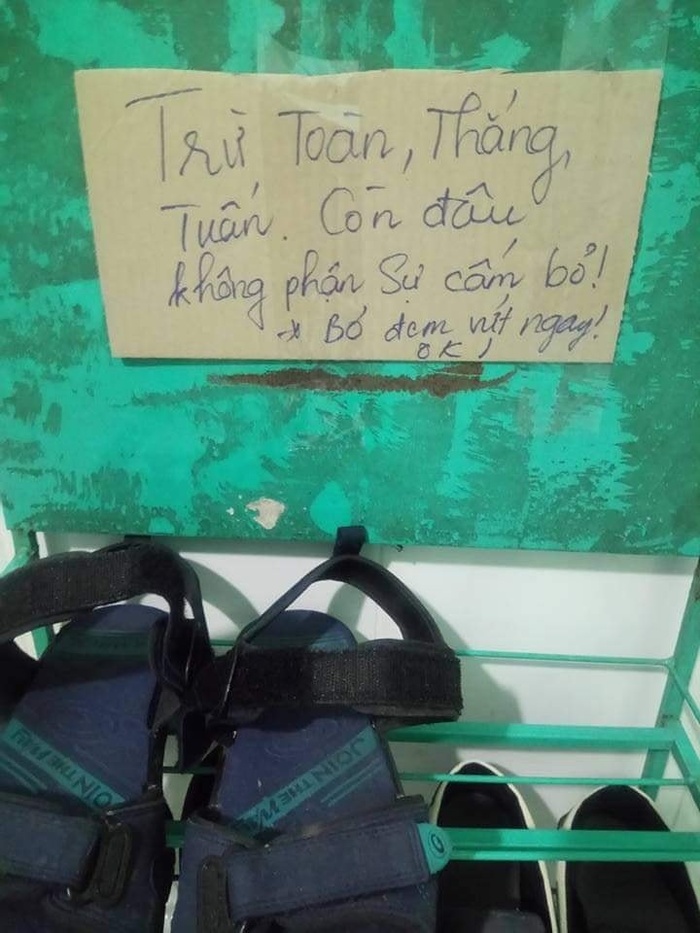 Trừ Toàn, Thắng,
Tuấn. Còn đâu
không phận Sự cấm bỏ!
→ Bỏ đem vứt ngay!
OK,
JOIN THE
JOIN THE